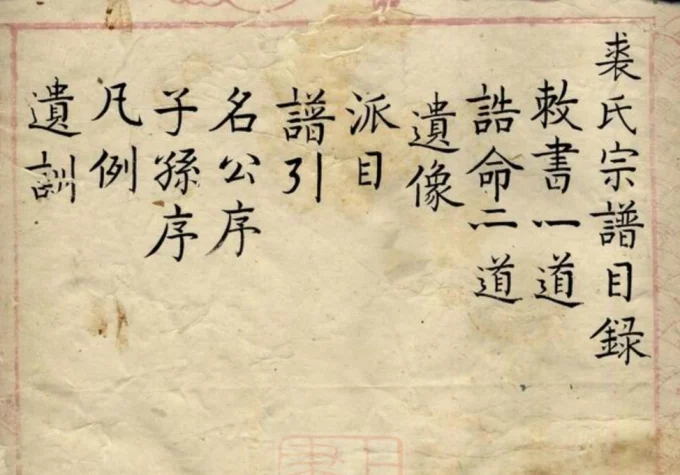 裘氏宗譜目錄
敕書一道
誥命二道
遺像
派目
譜引
名公序
子孫序
凡例
遺訓